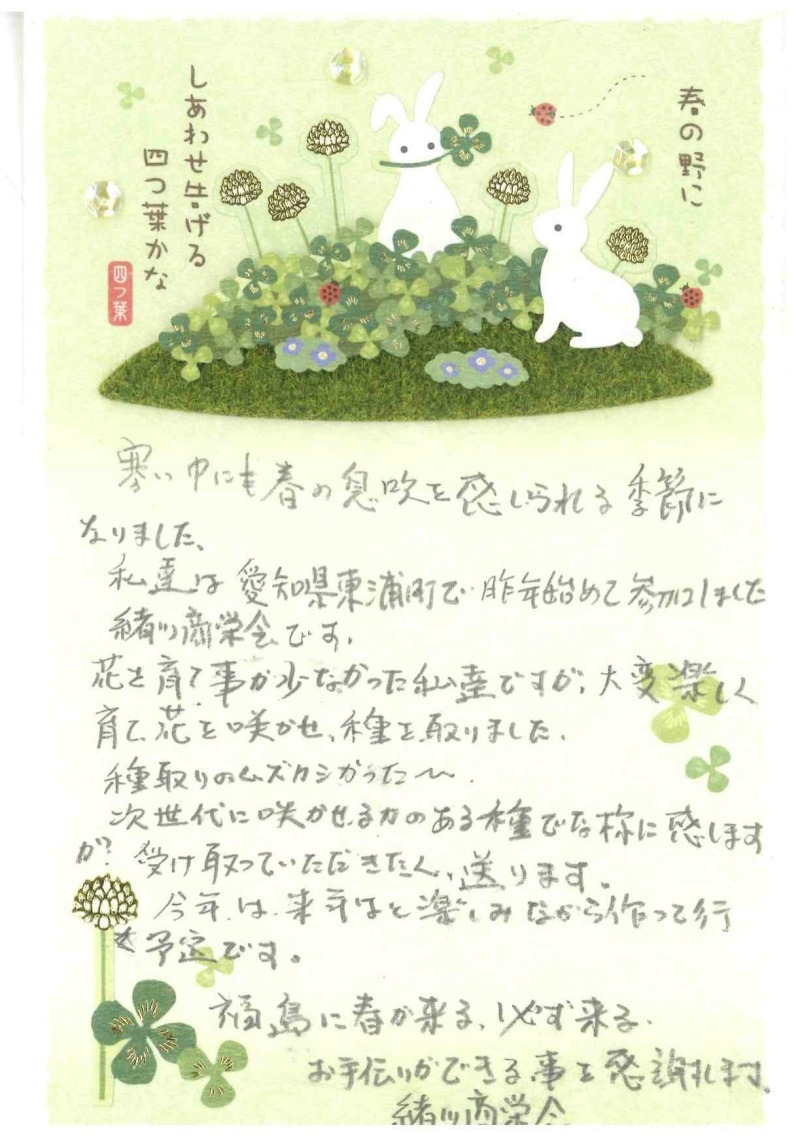 春の野に
しあわせ告げる
四つ葉かな
四つ葉
寒い中にも春の息吹を感じられる季節に
なりました、
私達は愛知県東浦町で昨年始めて参加しました
緒川商栄会です。
花を育て事が少なかった私達ですが、大変楽しく
育て、花を咲かせ、種を取りました。
種取りのムズカシかった〜。
次世代に咲かせる力のある種でな様に感じます
が? 受け取っていただきたく、送ります。
今年は、来年はと楽しみながら作って行
く予定です。
福島に春が来る、必ず来る。
お手伝いができる事を感謝します。
緒川商栄会